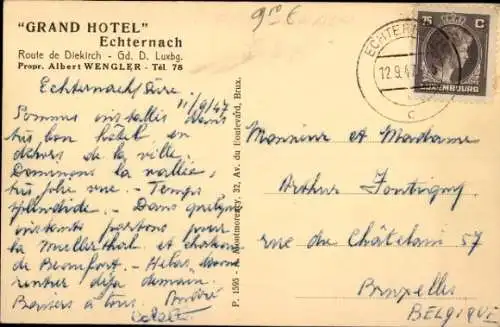 "GRAND HOTEL"
Echternach
Route de Diekirch - Gd. D. Luxbg.
Propr. Albert WENGLER - Tél 78
9,50 €
Echternach/Sûre
11/9/47
Sommes installés dans
très bon hôtel en
dehors de la ville.
Dominons la vallée,
très jolie vue. - Temps
splendide. - Dans quelques
instants partons pour
la Mullerthal et château
de Beaufort. - Hélas,
rentrer déjà demain.
Baisers à tous. André
P. 1595 - A. Montmorency, 32, Av. du Boulevard, Brux.
ECHTERN
12.9.4
C
75 C
LUXEMBOURG
Monsieur et Madame
Arthur Fontigny
rue du Châtelain 57
Bruxelles
BELGIQUE